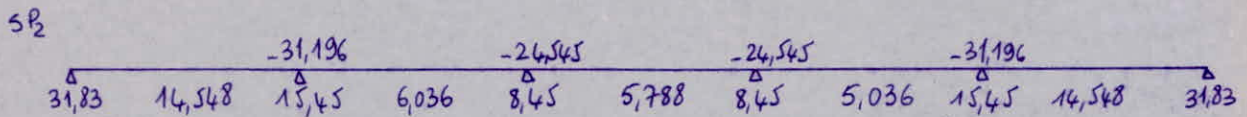 SP2
-31,196 -24,545 -24,545 -31,196
31,83 14,548 15,45 6,036 8,45 5,788 8,45 5,036 15,45 14,548 31,83